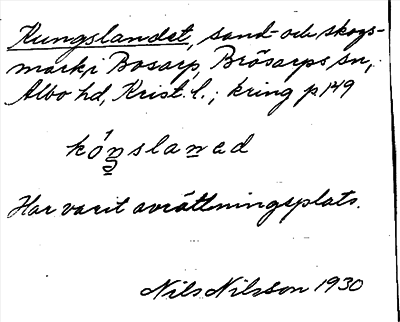 Kungslandet, sand- och skogs-
mark, i Bosarp, Brösarps sn,
Albo hd, Krist. l.; kring p 149
kón̲slan̲ed
Har varit avrättningsplats.
Nils Nilsson 1930